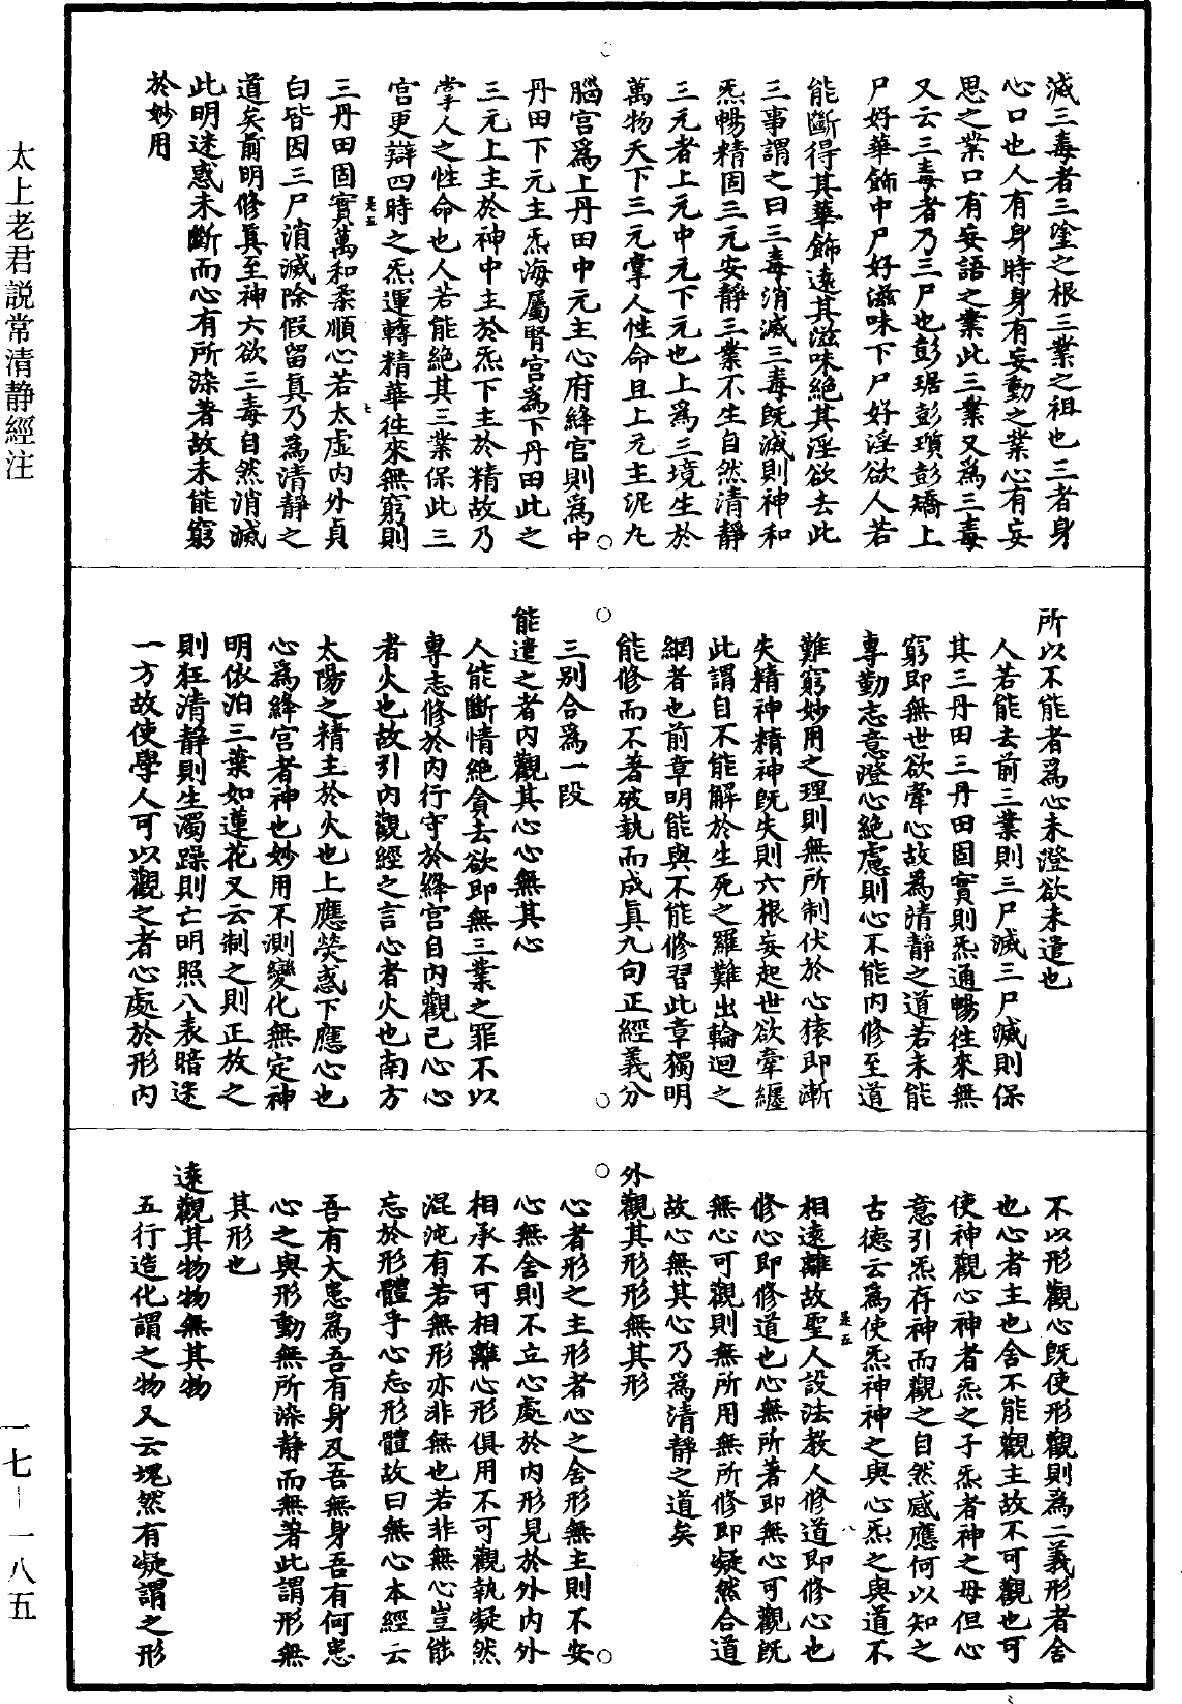 太上老君説常清静經注
一七—一八五
滅三毒者三塗之根三業之祖也三者身
心口也人有身時身有妄動之業心有妄
思之業口有妄語之業此三業又為三毒
又云三毒者乃三尸也彭琚彭瓆彭矯上
尸好華飾中尸好滋味下尸好淫欲人若
能斷得其華飾遠其滋味絶其淫欲去此
三事謂之曰三毒消滅三毒既滅則神和
炁暢精固三元安静三業不生自然清静
三元者上元中元下元也上為三境生於
萬物天下三元掌人性命且上元主泥丸
腦宮為上丹田中元主心府絳宮則為中
丹田下元主炁海屬腎宮為下丹田此之
三元上主於神中主於炁下主於精故乃
掌人之性命也人若能絶其三業保此三
宮更辯四時之炁運轉精華往來無窮則
三丹田固實萬和柔順心若太虚内外貞
白皆因三尸消滅除假留真乃為清静之
道矣前明修真至神六欲三毒自然消滅
此明迷惑未斷而心有所染著故未能窮
於妙用
所以不能者為心未澄欲未遣也
人若能去前三業則三尸滅三尸滅則保
其三丹田三丹田固實則炁通暢往來無
窮即無世欲牽心故為清静之道若未能
專勤志意澄心絶慮則心不能内修至道
難窮妙用之理則無所制伏於心猿即漸
失精神精神既失則六根妄起世欲牽纏
此謂自不能解於生死之羅難出輪迴之
網者也前章明能與不能修習此章獨明
能修而不著破執而成真九句正經義分
三別合為一段
能遣之者内觀其心心無其心
人能斷情絶貪去欲即無三業之罪不以
專志修於内行守於絳宮自内觀己心心
者火也故引内觀經之言心者火也南方
太陽之精主於火也上應熒惑下應心也
心為絳宮者神也妙用不測變化無定神
明依泊三葉如蓮花又云制之則正放之
則狂清静則生濁躁則亡明照八表暗迷
一方故使學人可以觀之者心處於形内
不以形觀心既使形觀則為二義形者舍
也心者主也舍不能觀主故不可觀也可
使神觀心神者炁之子炁者神之母但心
意引炁存神而觀之自然感應何以知之
古德云為使炁神神之與心炁之與道不
相遠離故聖人設法教人修道即修心也
修心即修道也心無所著即無心可觀既
無心可觀則無所用無所修即凝然合道
故心無其心乃為清静之道矣
外觀其形形無其形
心者形之主形者心之舍形無主則不安
心無舍則不立心處於内形見於外内外
相承不可相離心形俱用不可觀執凝然
混沌有若無形亦非無也若非無心豈能
忘於形體乎心忘形體故曰無心本經云
吾有大患為吾有身及吾無身吾有何患
心之與形動無所染静而無著此謂形無
其形也
遠觀其物物無其物
五行造化謂之物又云塊然有凝謂之形